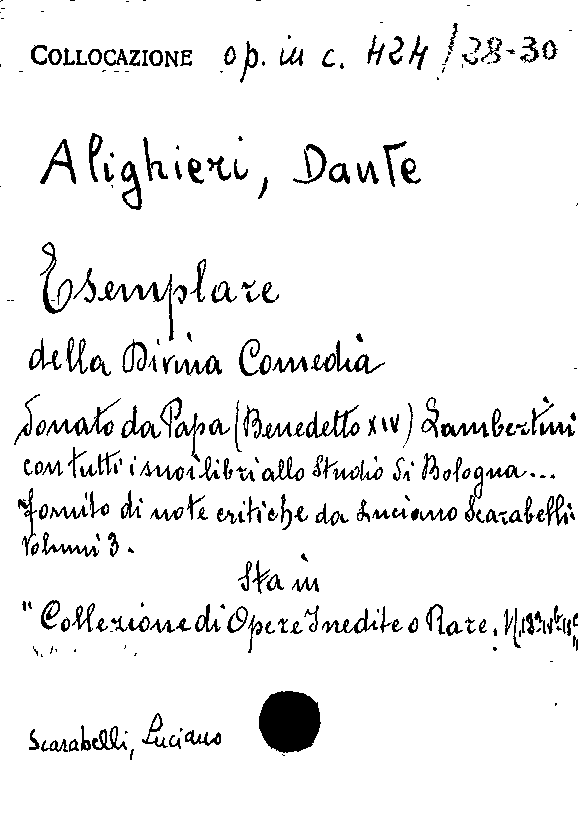 COLLOCAZIONE op. in c. 424/28-30
Alighieri, Dante
Esemplare
della Divina Comedia
donato da Papa (Benedetto XIV) Lambertini
con tutti i suoi libri allo Studio di Bologna...
fornito di note critiche da Luciano Scarabelli.
Volumi 3.
Sta in
"Collezione di Opere Inedite o Rare.
Scarabelli, Luciano